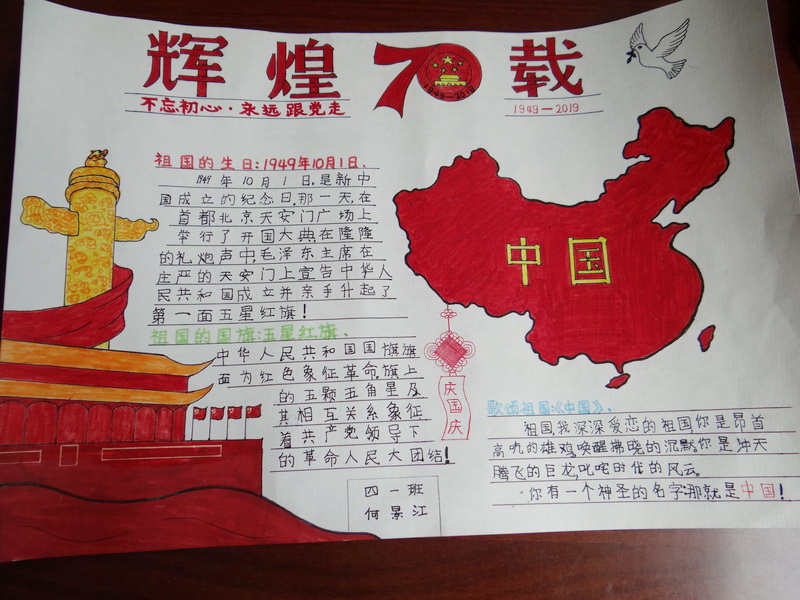 辉煌70载
1949-2019
不忘初心·永远跟党走
1949—2019
祖国的生日:1949年10月1日、
1949年10月1日.是新中
国成立的纪念日.那一天,在
首都北京天安门广场上
举行了开国大典在隆隆
的礼炮声中,毛泽东主席在
庄严的天安门上宣告中华人
民共和国成立并亲手升起了
第一面五星红旗!
祖国的国旗:五星红旗、
中华人民共和国国旗旗
面为红色象征革命旗上
的五颗五角星及
其相互关系象征
着共产党领导下
的革命人民大团结!
中国
庆国庆
歌颂祖国:《中国》、
祖国我深深爱恋的祖国你是昂首
高吭的雄鸡唤醒拂晓的沉默你是冲天
腾飞的巨龙,叱咤时代的风云。
你有一个神圣的名字:那就是中国!
四一班
何景江